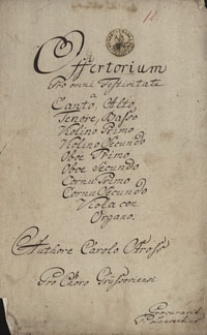 Offertorium
Pro omni Festivitate
a
Canto, Alto,
Tenore, Basso
Violino Primo
Violino Secundo
Oboe Primo
Oboe Secundo
Cornu Primo
Cornu Secundo
Viola con
Organo.
Authore Carolo
Pro Choro Grüssoviensi
Procuravit